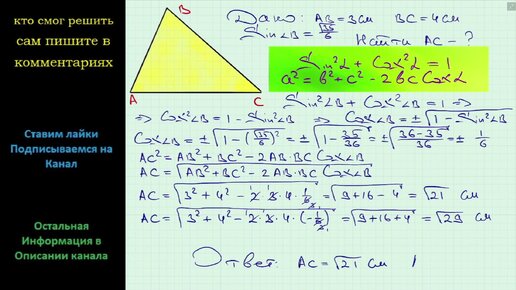 кто смог решить
сам пишите в
комментариях
Ставим лайки
Подписываемся на
Канал
Остальная
Информация в
Описании канала
B
A
C
Дано: AB=3см BC=4см
Sin∠B=√35/6 Найти AC-?
Sin²α + Cos²α = 1
a² = b²+c²-2bc Cosα
Sin²∠B + Cos²∠B = 1 ⇒
⇒ Cos²∠B = 1 - Sin²∠B ⇒ Cos∠B = ±√(1-Sin²∠B)
Cos∠B = ±√(1-(√35/6)²) = ±√(1-35/36) = ±√((36-35)/36) = ±1/6
AC² = AB²+BC²-2AB·BC Cos∠B
AC = √(AB²+BC²-2AB·BC Cos∠B)
AC = √(3²+4²-2·3·4·1/6) = √(9+16-4) = √21 см
AC = √(3²+4²-2·3·4·(-1/6)) = √(9+16+4) = √29 см
Ответ: AC=√21 см